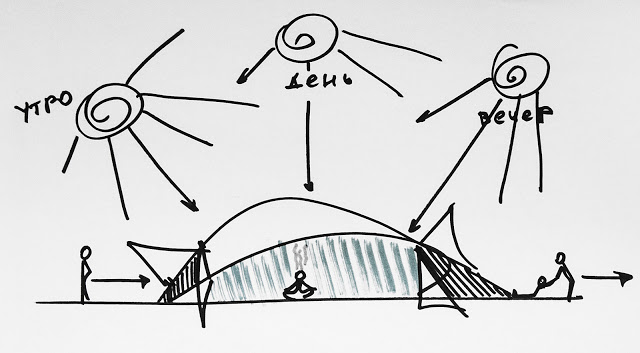 УТРО
ДЕНЬ
ВЕЧЕР